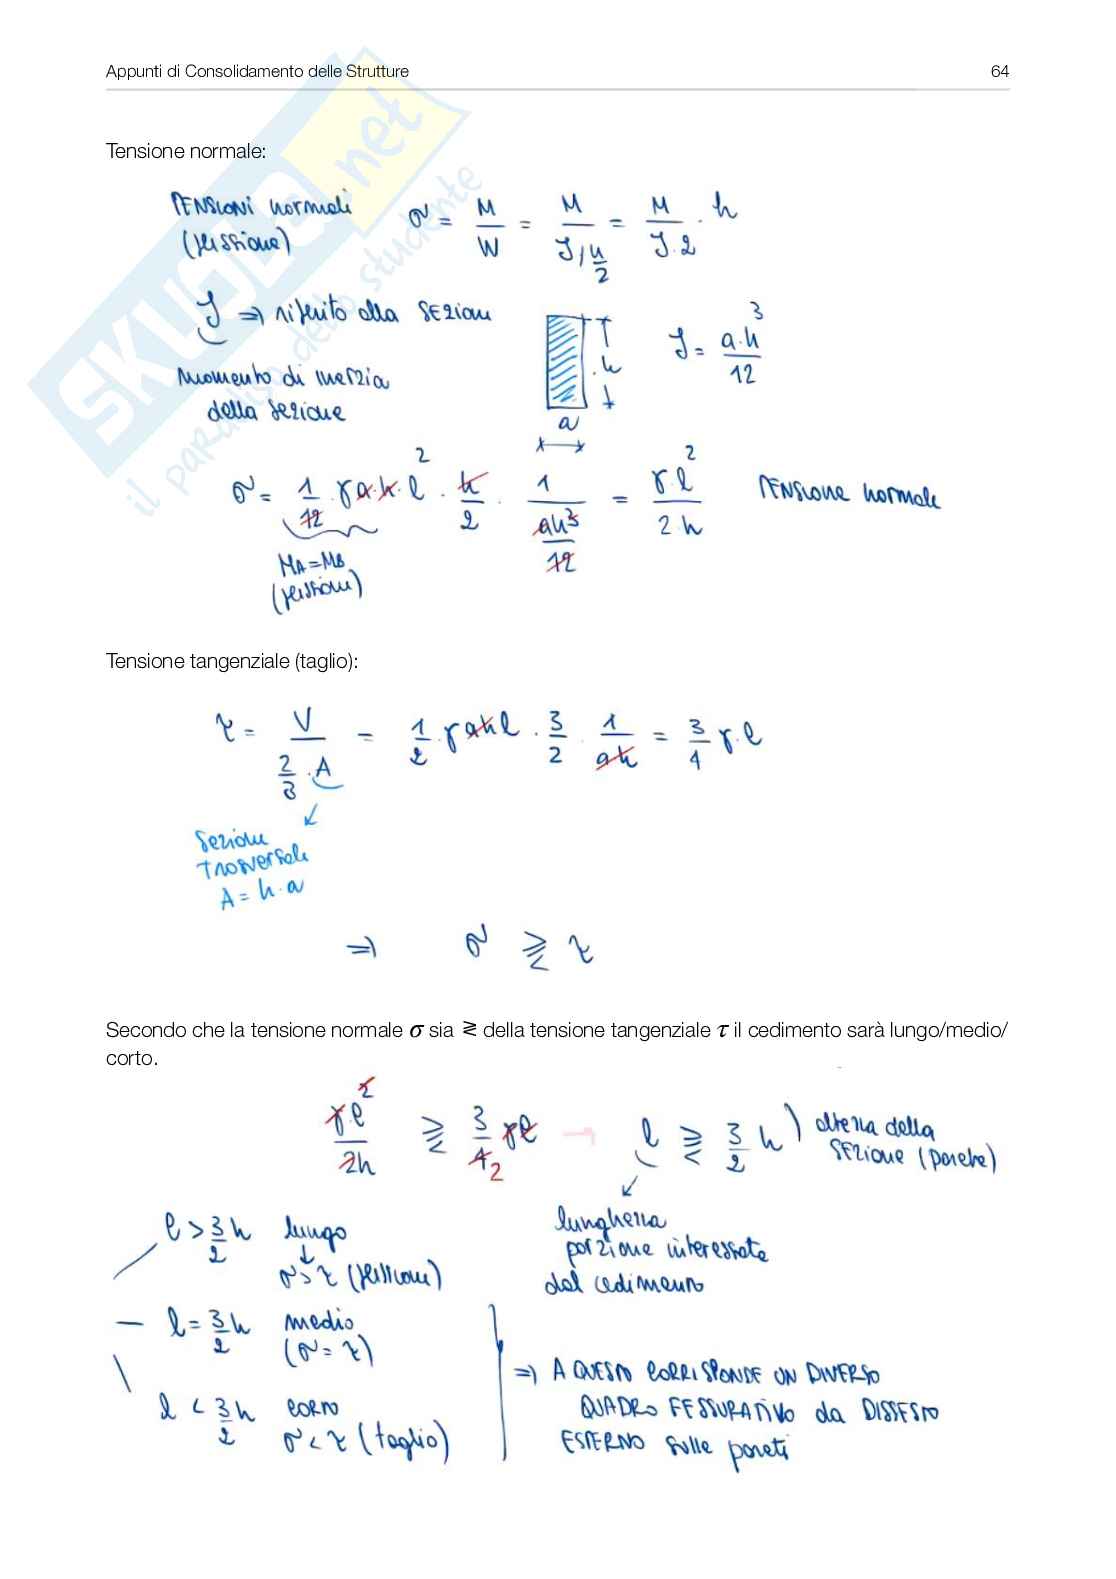 Appunti di Consolidamento delle Strutture 64
SKUOLA.net
il paradiso dello studente
Tensione normale:
TENSIONI normali (flessione) σ = M/W = M/(J/(h/2)) = M/(J·2) · h
J ⇒ riferito alla SEZIONE
momento di inerzia
della sezione
h
a
J = a·h³/12
σ = 1/12 · γ a·h·l² · h/2 · 1/(ah³/12) = γ·l²/(2·h) TENSIONE normale
MA = MB
(flessione)
Tensione tangenziale (taglio):
τ = V/(2/3 · A) = 1/2 · γ a h l · 3/2 · 1/(ah) = 3/4 γ·l
Sezione
Trasversale
A = h·a
⇒ σ ⪌ τ
Secondo che la tensione normale σ sia ≷ della tensione tangenziale τ il cedimento sarà lungo/medio/
corto.
γ·l²/2h ⪌ 3/4 γl → l ⪌ 3/2 h
2
altezza della
SEZIONE (parete)
lunghezza
porzione interessata
dal cedimento
l > 3/2 h lungo
↓
σ > τ (flessione)
— l = 3/2 h medio
(σ = τ)
l < 3/2 h corto
σ < τ (taglio)
⇒ A QUESTO CORRISPONDE UN DIVERSO
QUADRO FESSURATIVO da DISSESTO
ESTERNO sulle pareti